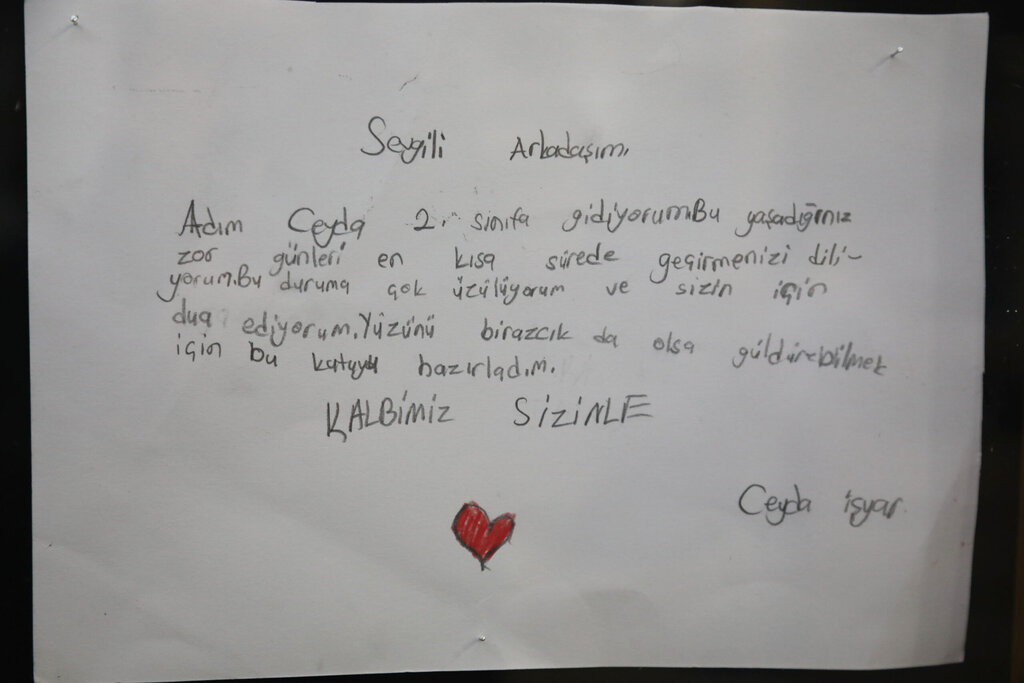 Sevgili Arkadaşım,
Adım Ceyda 2. sınıfa gidiyorum.Bu yaşadığınız
zor günleri en kısa sürede geçirmenizi dili-
yorum.Bu duruma çok üzülüyorum ve sizin için
dua ediyorum.Yüzünü birazcık da olsa güldürebilmek
için bu kutuyu hazırladım.
KALBİMİZ SİZİNLE
Ceyda işyar